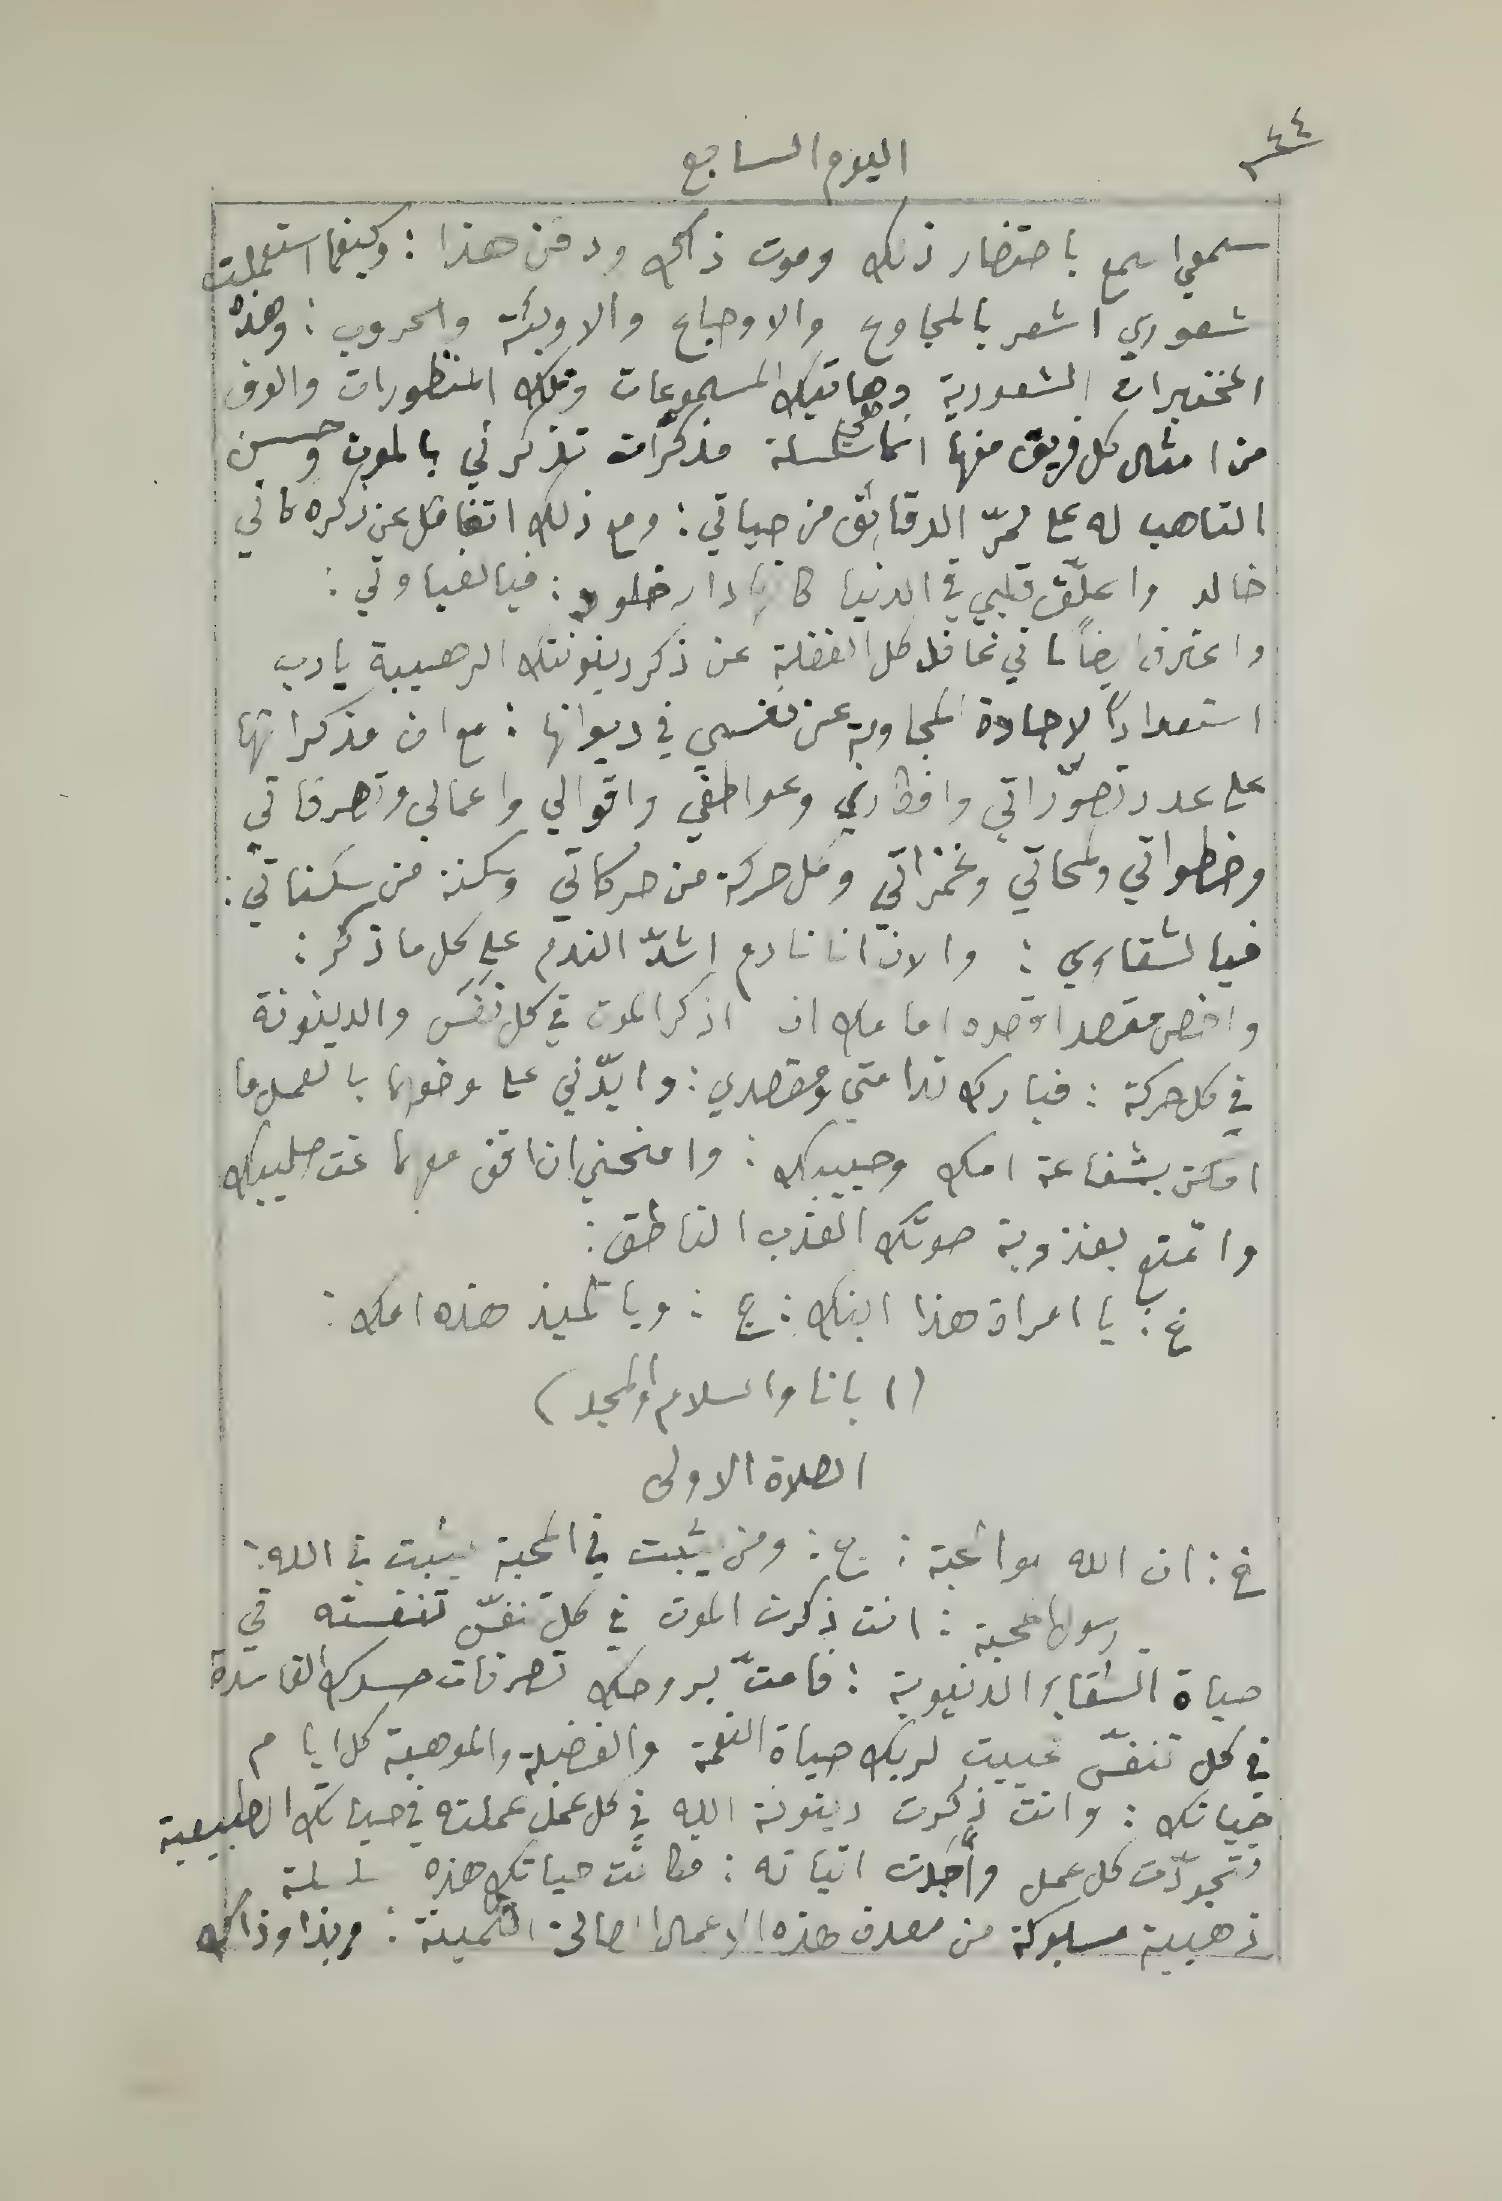 ٤٤
اليوم السابع
سمعي اسمع باحتضار ذلك وموت ذاك ودفن هذا : وكيفما استعملت
شعوري اشعر بالمجاوع والاوجاع والاوبئة والحروب : وهذه
المختبرات الشعورية وهاتيك المسموعات وتلك المنظورات والوف
من امثال كل فريق منها انما هي سلسلة مذكرات تذكرني بالموت وحسن
التاهب له على ممرّ الدقائق من حياتي : ومع ذلك اتغافل عن ذكره كاني
خالد واعلّق قلبي في الدنيا كانها دار خلود : فيا لغباوتي :
واعترف ايضاً باني غافل كل الغفلة عن ذكر دينونتك الرهيبة يا رب
استعداداً لاجادة المجاوبة عن نفسي في ديوانها : مع ان مذكراتها
على عدد تصوّراتي وافكاري وعواطفي واقوالي واعمالي وتصرفاتي
وخطواتي ولمحاتي وغمزاتي وكل حركة من حركاتي وسكنة من سكناتي :
فيا لشقاوي : والان انا نادم اشدّ الندم على كل ما ذكر :
واخص مقصد اقصده امامك ان اذكر الموت في كل نَفَس والدينونة
في كل حركة : فبارك ندامتي ومقصدي : وايّدني على وضعهما بالعمل ما
امكن بشفاعة امك وحبيبك : وامنحني ان اقف معهما تحت صليبك
واتمتع بعذوبة صوتك العذب الناطق :
خ : يا امراة هذا ابنك : ج : ويا تلميذ هذه امك :
(ابانا والسلام والمجد)
الصلاة الاولى
خ : ان الله هو المحبة : ج : ومن يثبت في المحبة يثبت في الله :
رسول المحبة : انت ذكرت الموت في كل نفسّ تنفسته في
حياة الشقاء الدنيوية : فامتّ بروحك تصرفات جسدك الفاسدة
في كل تنفسّ فحييت لربك حياة النعمة والفضيلة والموهبة كل ايام
حياتك : وانت ذكرت دينونة الله في كل عمل عملته في حياتك الطبيعية
فتجودّت كل عمل وأجدت اتيانه : فكانت حياتك هذه سلسلة
ذهبية مسبوكة من معدن هذه الاعمال الصالحة الثمينة : وبذا وذاك